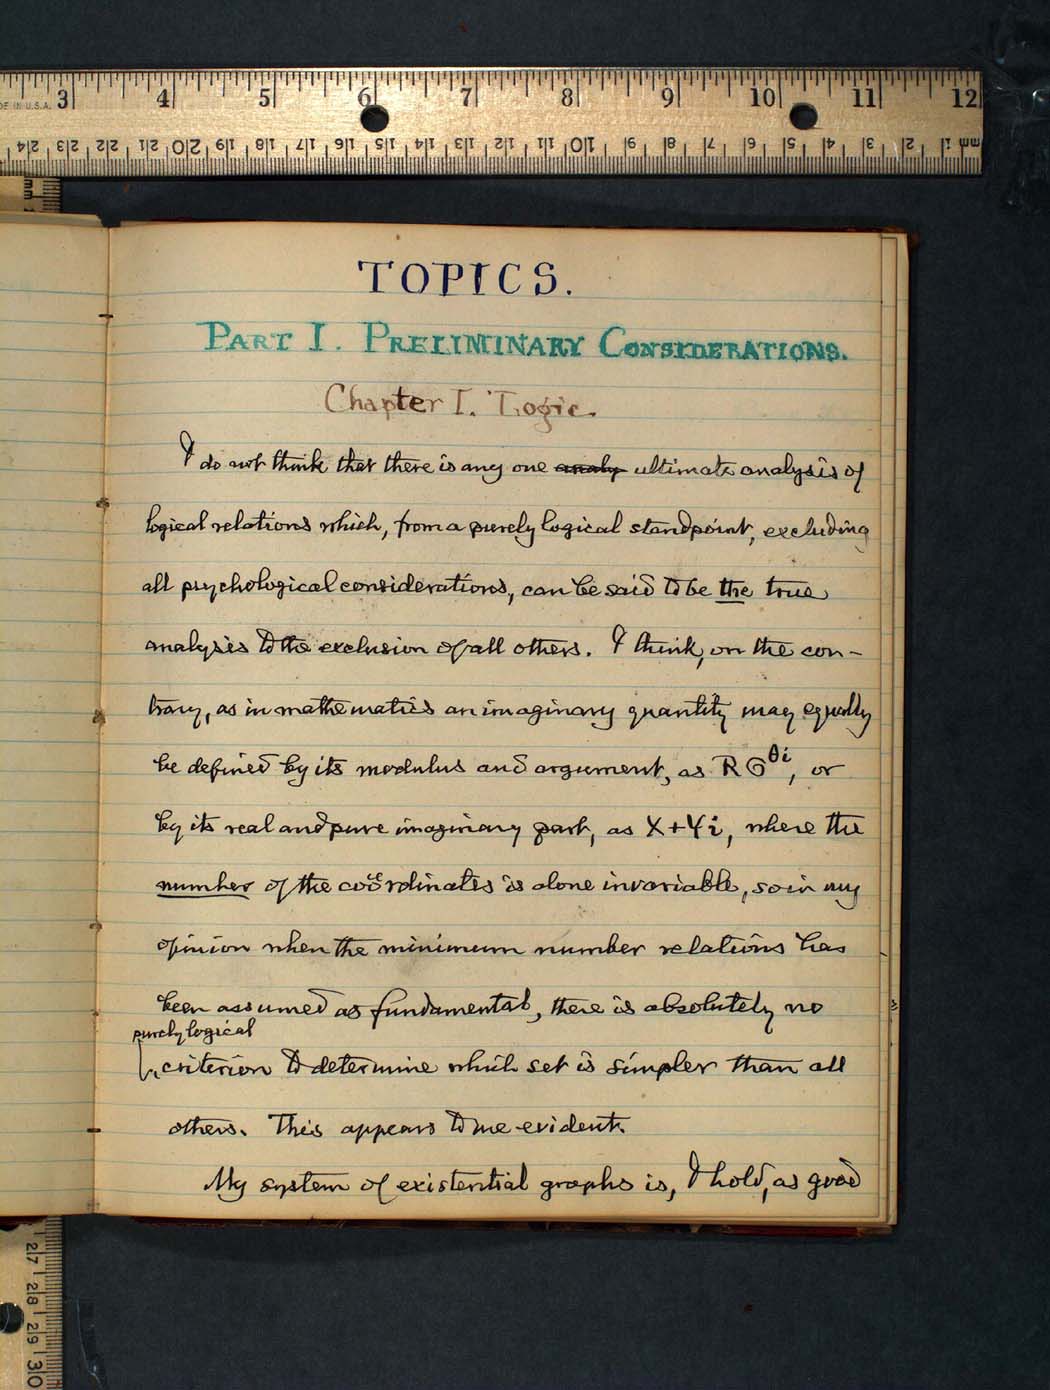 MADE IN U.S.A. 3 4 5 6 7 8 9 10 11 12
24 23 22 21 20 19 18 17 16 15 14 13 12 11 10 9 8 7 6 5 4 3 2 1 mm
mm
TOPICS.
PART I. PRELIMINARY CONSIDERATIONS.
Chapter I. Logic.
I do not think that there is any one analy ultimate analysis of
logical relations which, from a purely logical standpoint, excluding
all psychological considerations, can be said to be the true
analysis to the exclusion of all others. I think, on the con-
trary, as in mathematics an imaginary quantity may equally
be defined by its modulus and argument, as R㏄^θi, or
by its real and pure imaginary part, as X+Yi, where the
number of the coördinates is alone invariable, so in my
opinion when the minimum number relations has
been assumed as fundamental, there is absolutely no
purely logical
criterion to determine which set is simpler than all
others. This appears to me evident.
My system of existential graphs is, I hold, as good
27 28 29 30